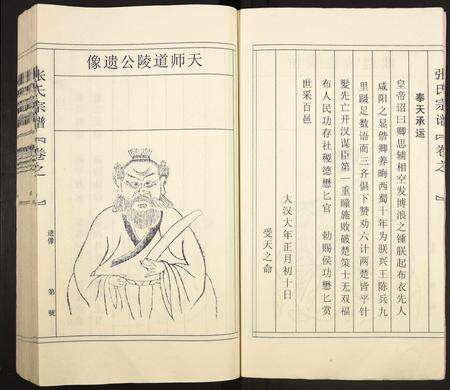 张氏宗谱『卷之
奉天承运
皇帝诏曰卿思辅相空发博浪之锤朕起布衣先人
咸阳之显借卿养晦西蜀十年为朕兴王陈兵九
里蹑足数语而三齐俱下赞劝六计两楚皆平针
髮先亡开汉谋臣第一重瞳施败破楚策士无双福
布人民功存社稷德懋匕官 勅赐侯功懋匕赏
世采百邑
大汉大年正月初十日
受天之命
天师道陵公遗像
张氏宗谱『卷之一』
遗像
第 號